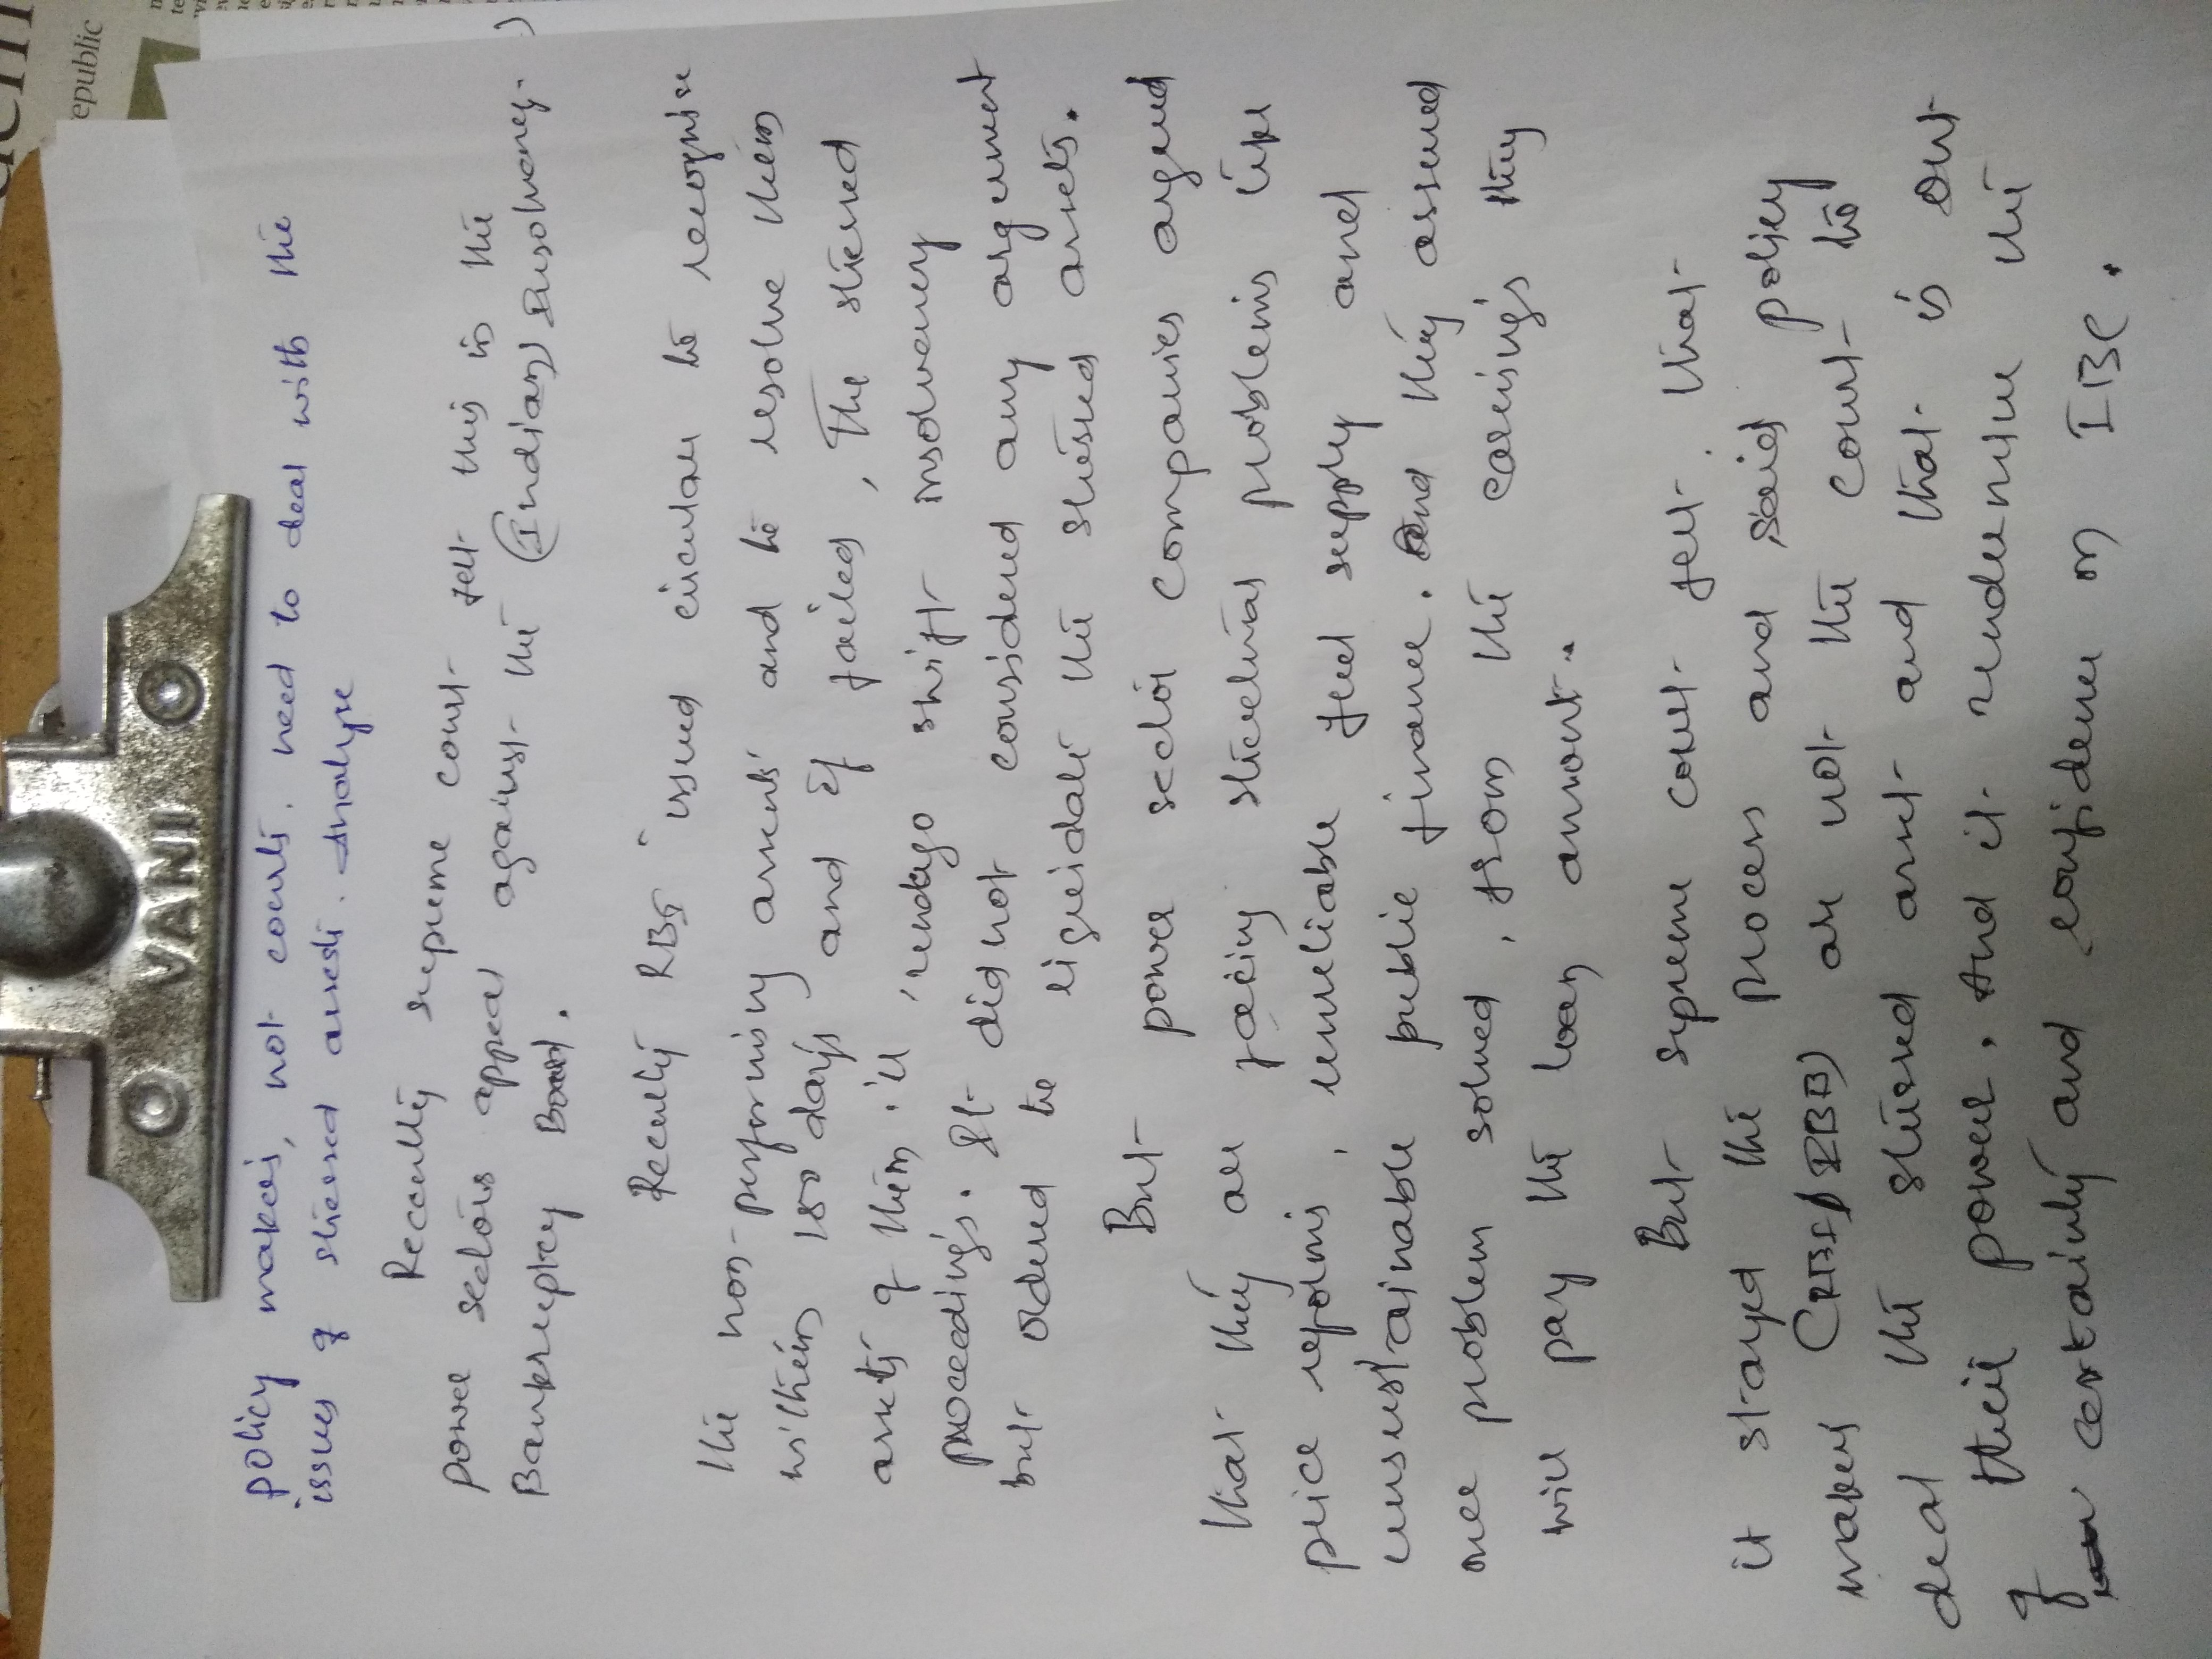 policy makers, not courts, need to deal with the
issues of stressed assests. Analyse
Recently supreme court felt this in the
power sectors appeal against the (Indian) Insolvency
Bankrruptcy Board.
Recently RBI issued circular to recognise
the non-performing assests and to resolve them
within 180 days and if failed, The stressed
assets of them 'll 'undago shift insolvency
proceedings. It did not considered any argument
but ordered to liquidate the stressed assets.
But power sector companies argued
that they are facing structural problems like
price reforms, unreliable fuel supply and
unsustainable public finance. And they assured
once problem solved, from the earnings they
will pay the loan amount.
But supreme court felt that
it stayed the process and said policy
makers (RBI/IBB) are not the court to
deal the stressed asset and that is out
of their power. And it undermine the
certainity and confidence on IBC.
VANI
epublic